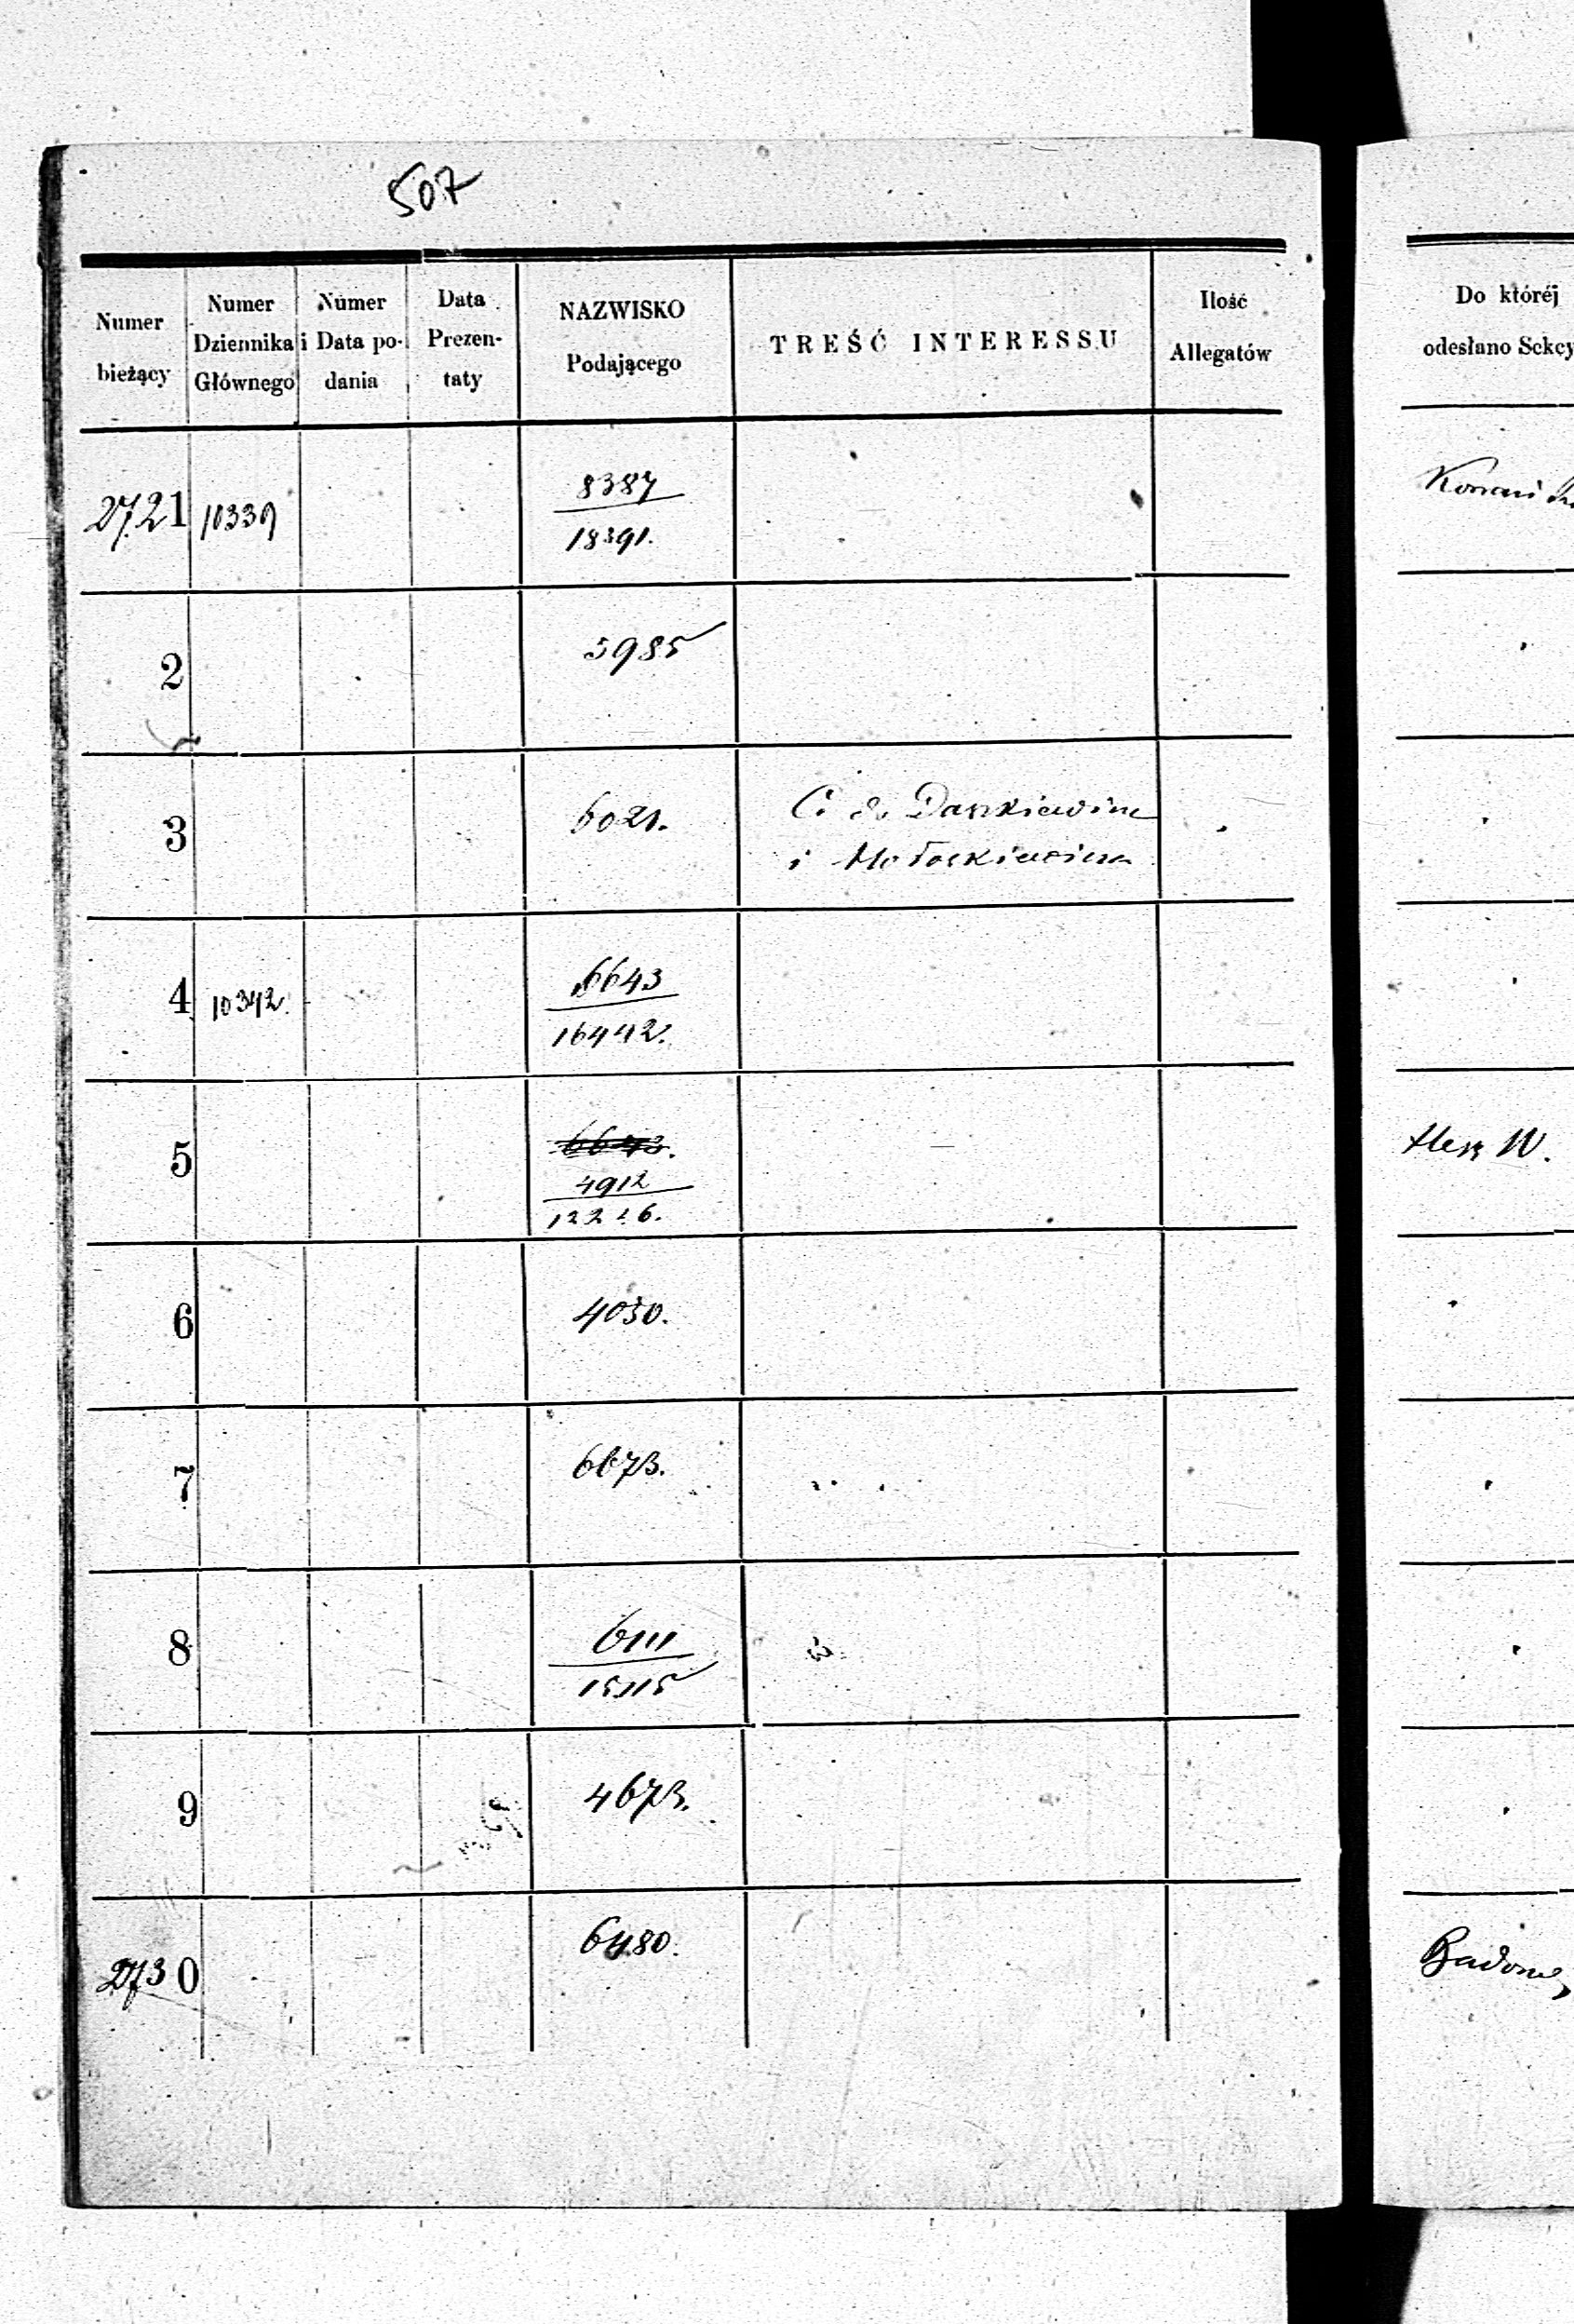 507
Numer bieżący
Numer Dziennika Głównego
Numer i Data podania
Data Prezentaty
NAZWISKO Podającego
TREŚĆ INTERESSU
Ilość Allegatów
Do któréj odesłano Sekcy
2721 10339 8387
18391.
2 5985
3 6021. C. do Daszkiewicza
i Mołoskiewicza
4 10342. 6643
16442.
5 6643.
4912
6 4030.
7 6673.
8 6111
15115
9 4673.
2730 6480.